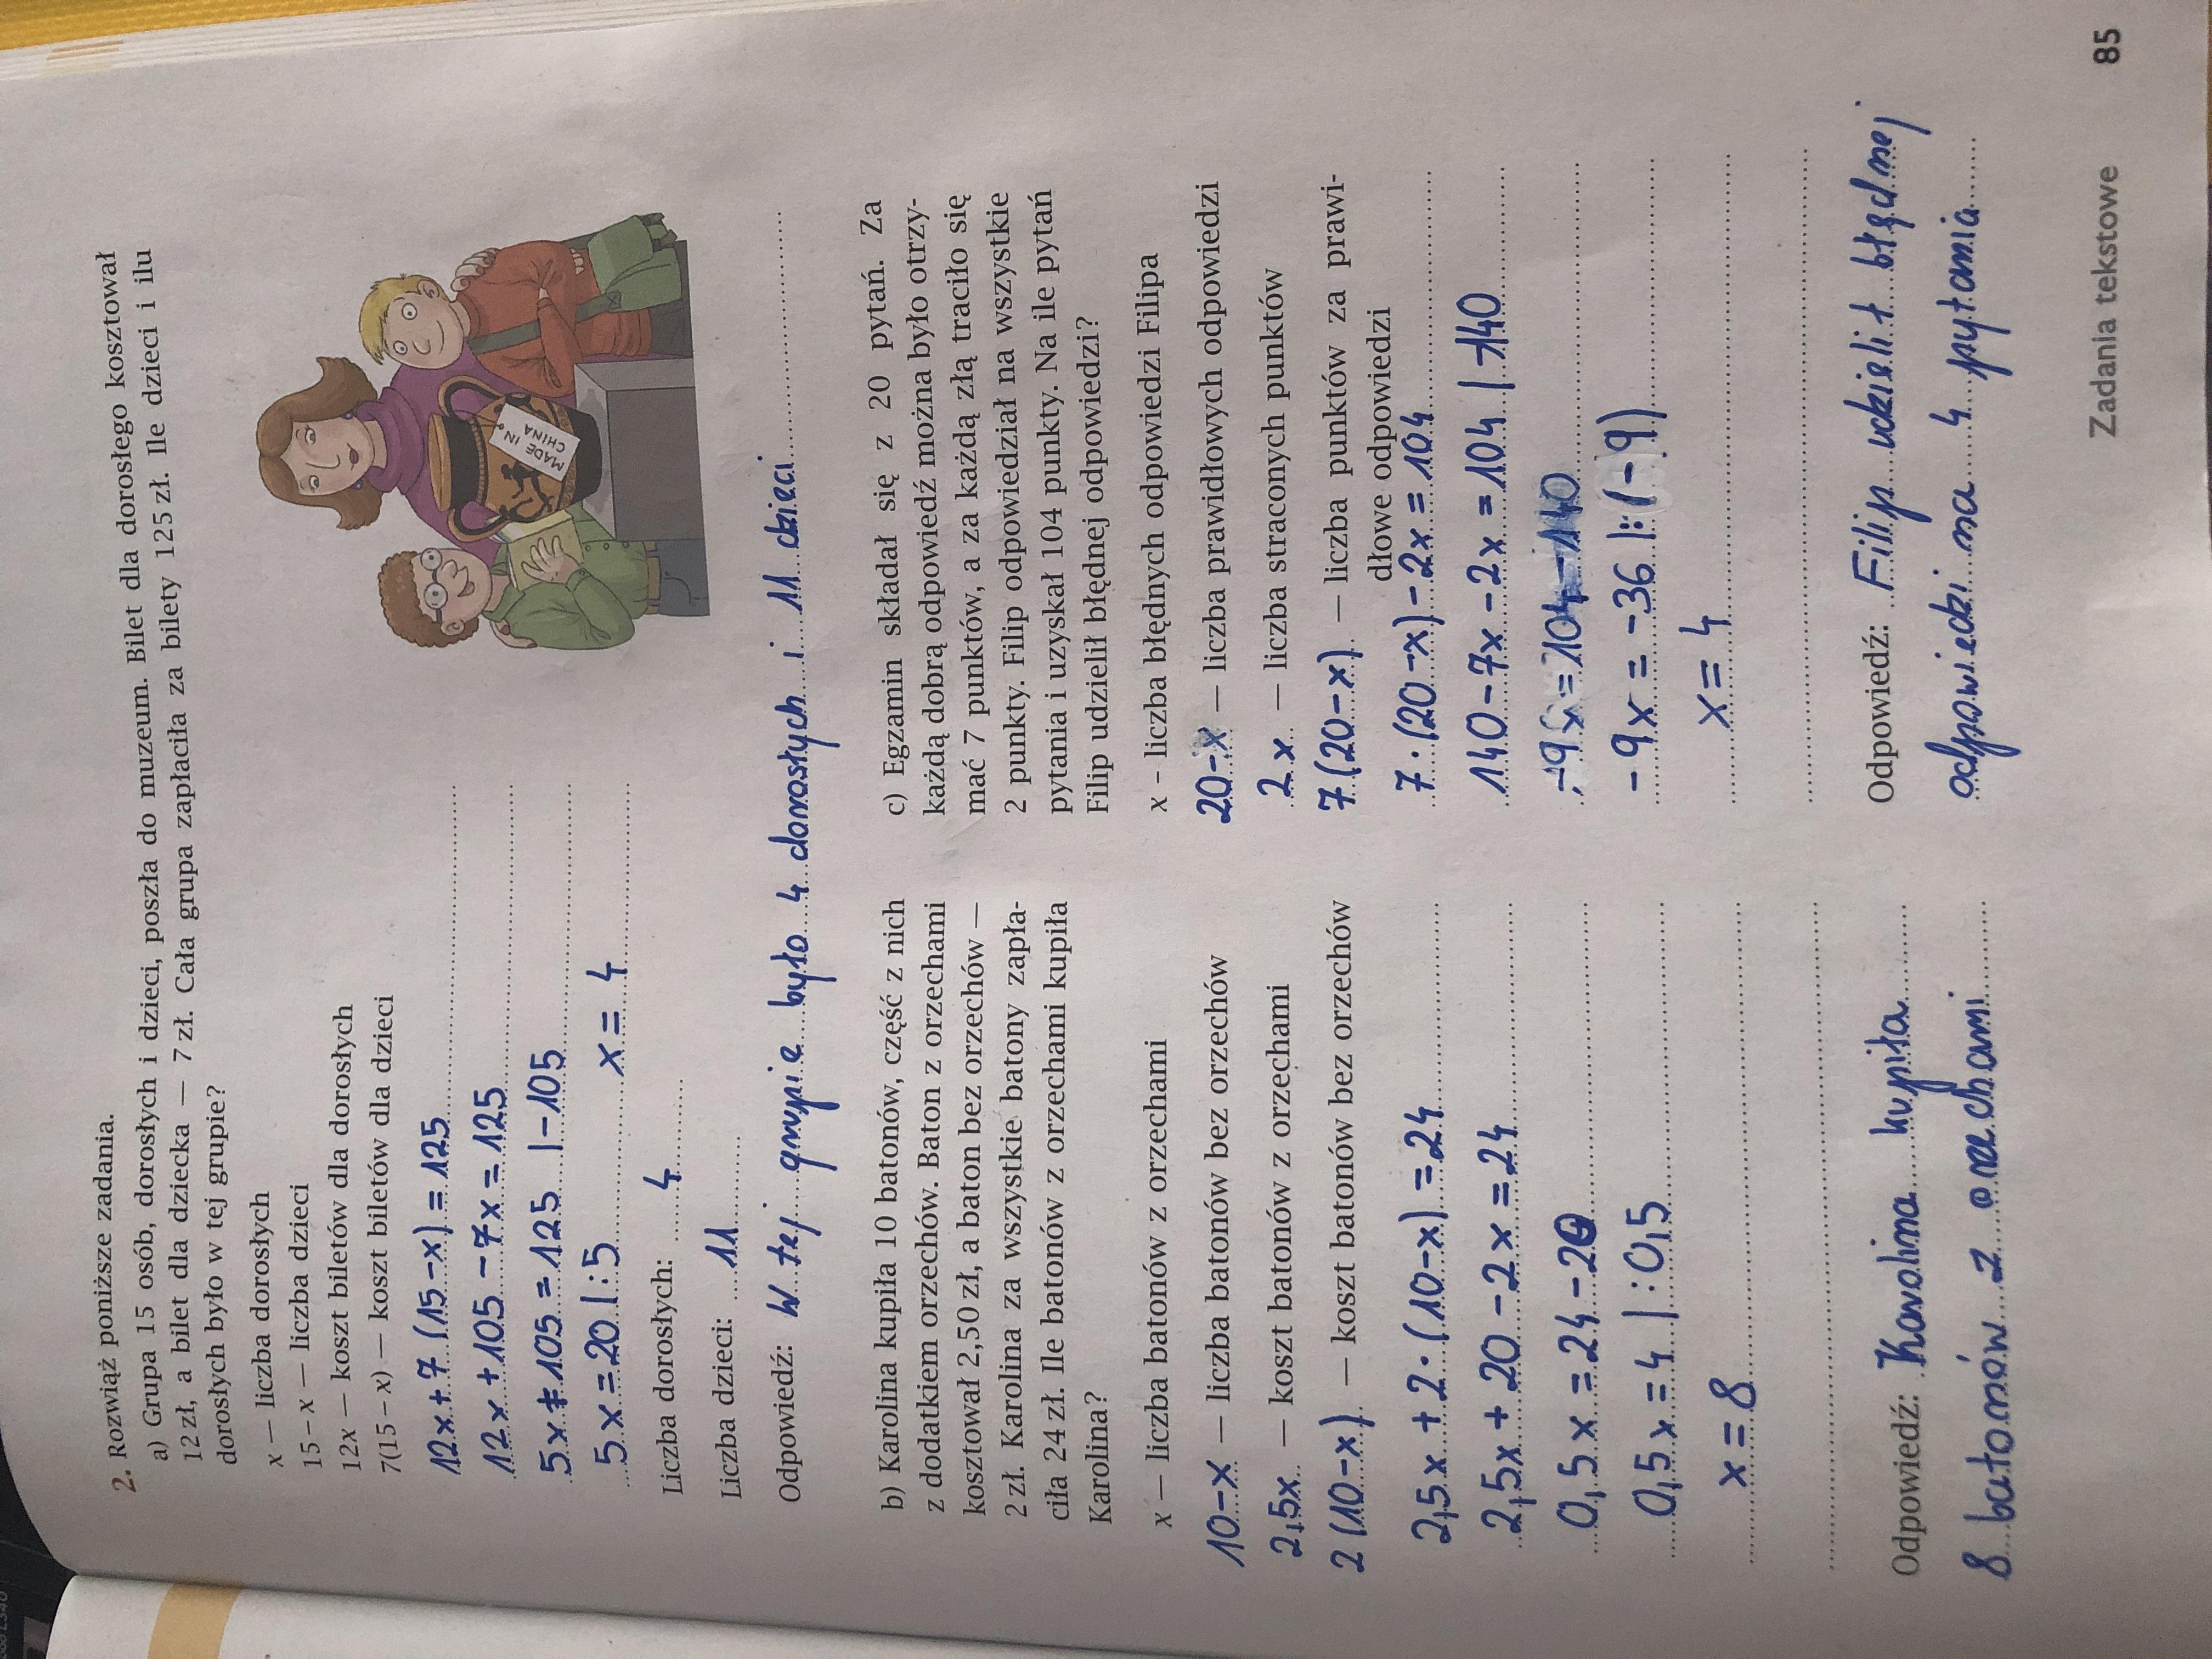 2. Rozwiąż poniższe zadania.
a) Grupa 15 osób, dorosłych i dzieci, poszła do muzeum. Bilet dla dorosłego kosztował
12 zł, a bilet dla dziecka — 7 zł. Cała grupa zapłaciła za bilety 125 zł. Ile dzieci i ilu
dorosłych było w tej grupie?
x — liczba dorosłych
15 – x — liczba dzieci
12x — koszt biletów dla dorosłych
7(15 – x) — koszt biletów dla dzieci
12x + 7 (15-x) = 125
12x + 105 - 7x = 125
5x + 105 = 125 | -105
5x = 20 | : 5
x = 4
MADE IN
CHINA
Liczba dorosłych: 4
Liczba dzieci: 11
Odpowiedź: W tej grupie było 4 dorosłych i 11 dzieci
b) Karolina kupiła 10 batonów, część z nich
z dodatkiem orzechów. Baton z orzechami
kosztował 2,50 zł, a baton bez orzechów —
2 zł. Karolina za wszystkie batony zapła-
ciła 24 zł. Ile batonów z orzechami kupiła
Karolina?
x — liczba batonów z orzechami
10-x — liczba batonów bez orzechów
2,5x — koszt batonów z orzechami
2 (10-x) — koszt batonów bez orzechów
2,5x + 2 · (10-x) = 24
2,5x + 20 - 2x = 24
0,5x = 24 - 20
0,5x = 4 | : 0,5
x = 8
Odpowiedź: Karolina kupiła
8 batonów z orzechami
c) Egzamin składał się z 20 pytań. Za
każdą dobrą odpowiedź można było otrzy-
mać 7 punktów, a za każdą złą traciło się
2 punkty. Filip odpowiedział na wszystkie
pytania i uzyskał 104 punkty. Na ile pytań
Filip udzielił błędnej odpowiedzi?
x – liczba błędnych odpowiedzi Filipa
20-x — liczba prawidłowych odpowiedzi
2x — liczba straconych punktów
7 (20-x) — liczba punktów za prawi-
dłowe odpowiedzi
7 · (20-x) - 2x = 104
140 - 7x - 2x = 104 | -140
-9x = 104 - 140
-9x = -36 | : (-9)
x = 4
Odpowiedź: Filip udzielił błędnej
odpowiedzi na 4 pytania
Zadania tekstowe 85